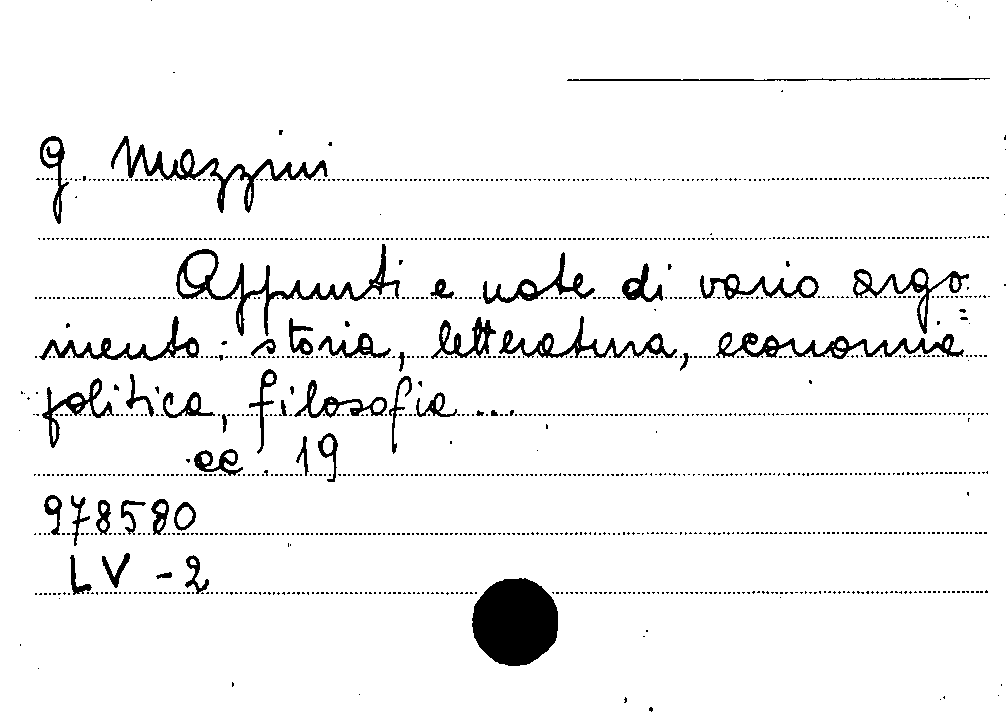 G. Mazzini
Appunti e note di vario argo=
mento: storia, letteratura, economia
politica, filosofia...
cc. 19
978580
LV - 2